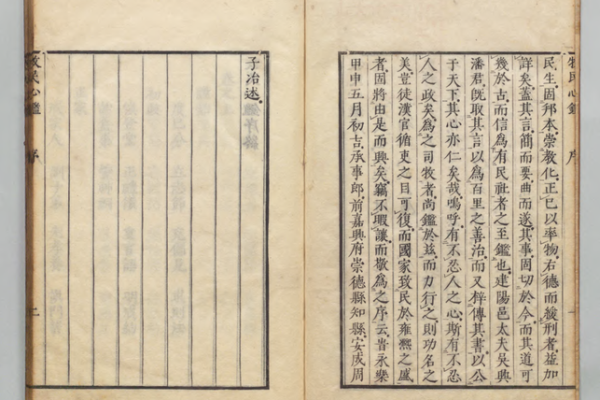 牧民心鑑 序
民生固邦本崇教化正己以率物右德而綏刑者益加
詳矣蓋其言簡而要曲而遂其事固切於今而其道可
幾於古而信爲有民社者之至鑑也建陽邑大夫吳興
潘君旣取其言以爲百里之善治而又梓傳其書以公
于天下其心亦仁矣哉嗚呼有不忍人之心斯有不忍
人之政矣爲之司牧者尚鑑於兹而力行之則功名之
美豈徒漢官循吏之目可復而國家致民於雍熙之盛
者固將由是而興矣竊不暇讓而敬爲之序云旹永樂
甲申五月初吉承事郎前嘉興府崇德縣知縣安成周
子冶述
牧民心鑑 序 二